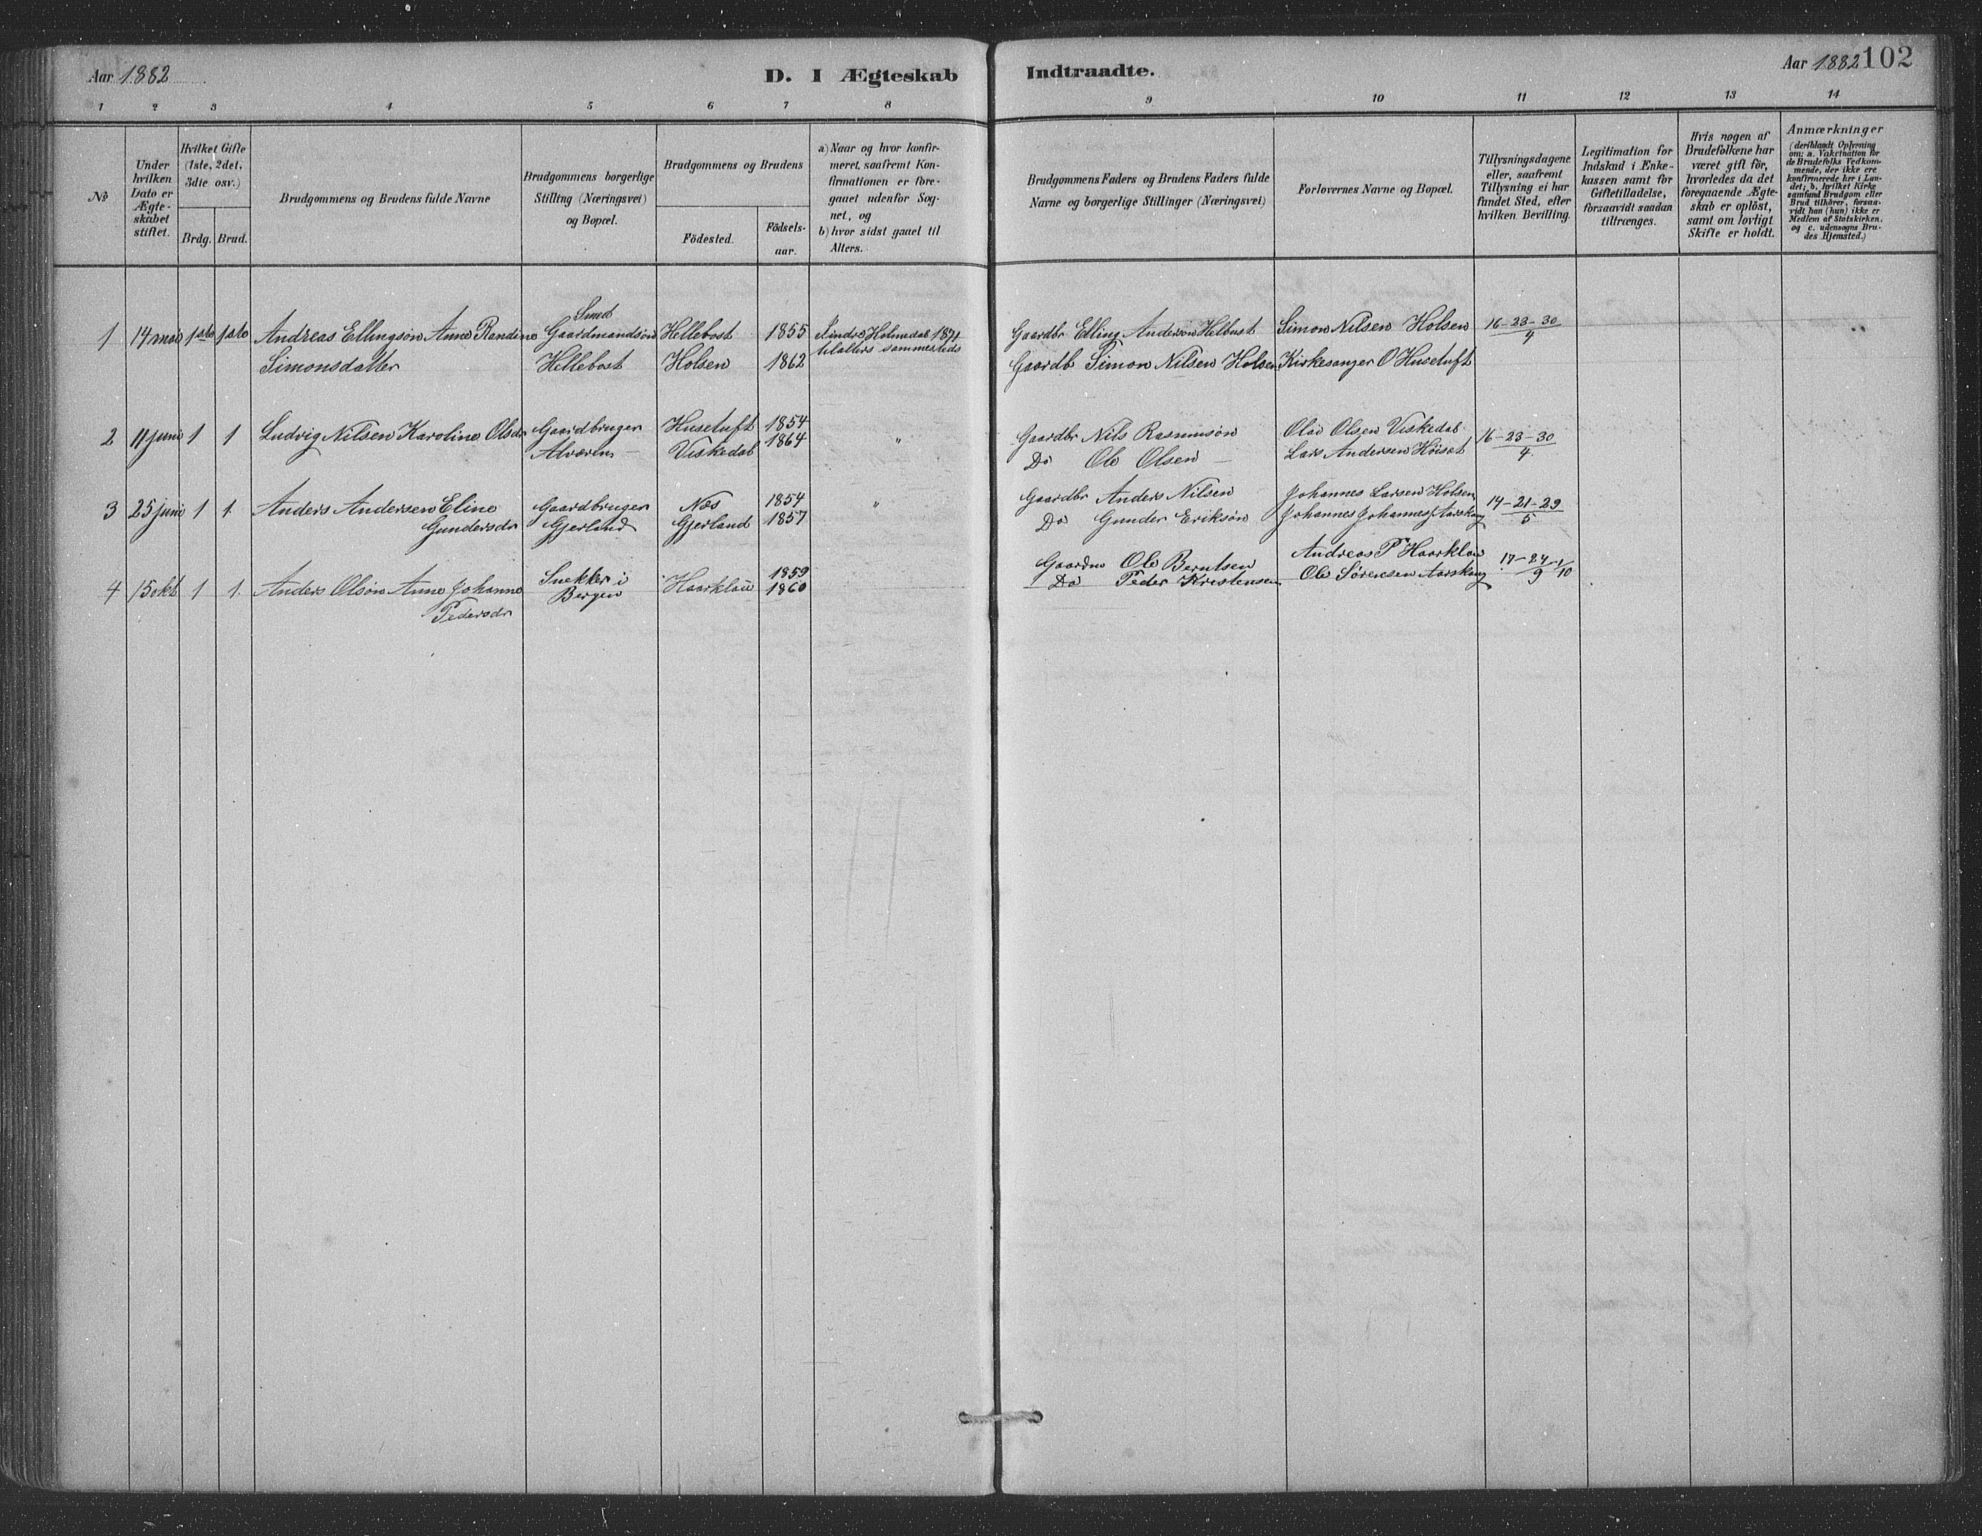 Aar 1882 D. I Ægteskab Indtraadte. Aar 1882 102
1 2 3 4 5 6 7 8 9 10 11 12 13 14
No
Under hvilken Dato er Ægteskabet stiftet.
Hvilket Gifte (1ste, 2det, 3die osv.)
Brdg. Brud.
Brudgommens og Brudens fulde Navne
Brudgommens borgerlige Stilling (Næringsvei) og Bopæl.
Brudgommens og Brudens
Födested. Födselsaar.
a) Naar og hvor konfirmeret, saafremt Konfirmationen er foregaaet udenfor Sognet, og
b) hvor sidst gaaet til Alters.
Brudgommens Faders og Brudens Faders fulde Navne og borgerlige Stillinger (Næringsvei)
Forlovernes Navne og Bopæl.
Tillysningsdagene eller, saafremt Tillysning ei har fundet Sted, efter hvilken Bevilling.
Legitimation for Indskud i Enkekassen samt for Giftetilladelse, forsaavidt saadan tiltrænges.
Hvis nogen af Brudefolkene har været gift för, hvorledes da det foregaaende Ægteskab er oplöst, samt om lovligt Skifte er holdt.
Anmærkninger (deriblandt Oplysning om: a. Vakcination for de Brudefolks Vedkommende, der ikke ere konfirmerede her i Landet; b. hvilket Kirkesamfund Brudgom eller Brud tilhörer, forsaavidt han (hun) ikke er Medlem af Statskirken, og c. udensogns Brudes Hjemsted.)
Smed
1 14 mai 1ste 1ste Andreas Ellingsön Anne Randine Gaardmandsön Hellebost 1855 Holmedal 1871 Gaardbr Elling Anderson Helbust Simon Nilsen Holsen 16-23-30/4
Simonsdatter Hellebost Holsen 1862 tilalters sammesteds Gaardb Simon Nilsen Holsen Kirkesanger O Husetuft
2 11 juni 1 1 Ludvig Nilsen Karoline Olsdr Gaardbruger Husetuft 1854 " Gaardbr Nils Rasmusön Olai Olsen Viskedal 16-23-30/4
Alværen Viskedal 1864 Do Ole Olsen Lars Andersen Höiset
3 25 juni 1 1. Anders Andersen Eline Gaardbruger Næs 1854 " Gaardbr Anders Nilsen Johannes Larsen Holsen 14-21-29/5
Gundersdr Gjerland Gjerland 1857 Do Gunder Eriksön Johannes Johannes Aarskog
4 15 okt 1 1. Anders Olsön Anne Johanne Snekker i Haarklau 1859 Gaardm Ole Berntsen Andreas P Haarklau 17-24/9-1/10
Pedersdr Bergen 1860 Do Peder Kristensen Ole Sörensen Aarskog